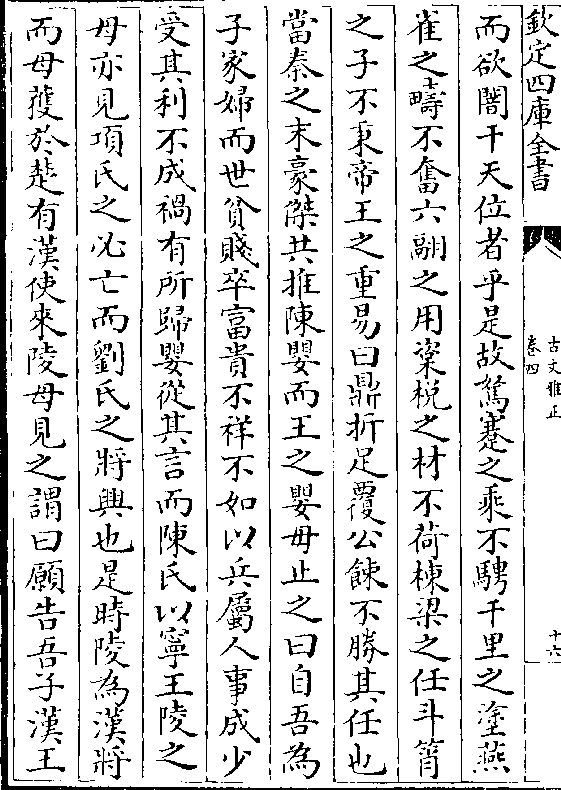 欽定四庫全書
古文雅正
卷四
十六
而欲闇干天位者乎是故駑蹇之乘不騁千里之塗燕
雀之疇不奮六翮之用楶梲之材不荷棟梁之任斗筲
之子不秉帝王之重易曰鼎折足覆公餗不勝其任也
當秦之末豪傑共推陳嬰而王之嬰母止之曰自吾為
子家婦而世貧賤卒富貴不祥不如以兵屬人事成少
受其利不成禍有所歸嬰從其言而陳氏以寧王陵之
母亦見項氏之必亡而劉氏之將興也是時陵為漢將
而母獲於楚有漢使來陵母見之謂曰願告吾子漢王